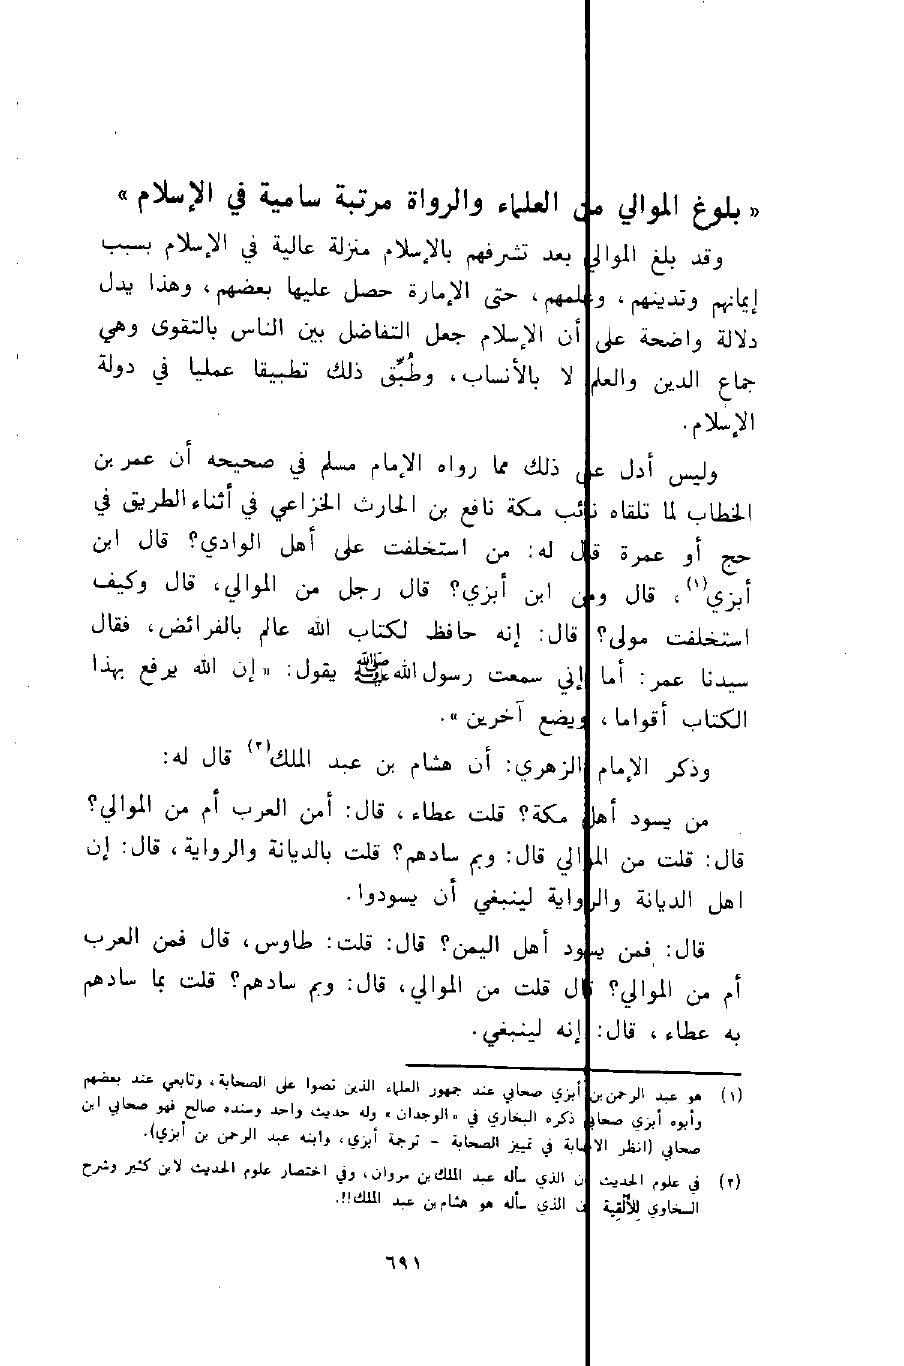 « بلوغ الموالي من العلماء والرواة مرتبة سامية في الإسلام »
وقد بلغ الموالي بعد تشرفهم بالإسلام منزلة عالية في الإسلام بسبب
إيمانهم وتدينهم، وعلمهم، حتى الإمارة حصل عليها بعضهم، وهذا يدل
دلالة واضحة على أن الإسلام جعل التفاضل بين الناس بالتقوى وهي
جماع الدين والعلم لا بالأنساب، وطُبِّق ذلك تطبيقا عمليا في دولة
الإسلام.
وليس أدل على ذلك مما رواه الإمام مسلم في صحيحه أن عمر بن
الخطاب لما تلقاه نائب مكة نافع بن الحارث الخزاعي في أثناء الطريق في
حج أو عمرة قال له: من استخلفت على أهل الوادي؟ قال ابن
أبزي(١)، قال ومن ابن أبزي؟ قال رجل من الموالي، قال وكيف
استخلفت مولى؟ قال: إنه حافظ لكتاب الله عالم بالفرائض، فقال
سيدنا عمر: أما إني سمعت رسول الله ﷺ يقول: « إن الله يرفع بهذا
الكتاب أقواما، ويضع آخرين ».
وذكر الإمام الزهري: أن هشام بن عبد الملك(٢) قال له:
من يسود أهل مكة؟ قلت عطاء، قال: أمن العرب أم من الموالي؟
قال: قلت من الموالي قال: وبم سادهم؟ قلت بالديانة والرواية، قال: إن
اهل الديانة والرواية لينبغي أن يسودوا.
قال: فمن يسود أهل اليمن؟ قال: قلت: طاوس، قال فمن العرب
أم من الموالي؟ قال قلت من الموالي، قال: وبم سادهم؟ قلت بما سادهم
به عطاء، قال: إنه لينبغي.
(١) هو عبد الرحمن بن أبزي صحابي عند جمهور العلماء الذين نصوا على الصحابة، وتابعي عند بعضهم
وأبوه أبزي صحابي ذكره البخاري في « الوجدان » وله حديث واحد وسنده صالح فهو صحابي ابن
صحابي (انظر الاصابة في تمييز الصحابة - ترجمة أبزي، وابنه عبد الرحمن بن أبزي).
(٢) في علوم الحديث أن الذي سأله عبد الملك بن مروان، وفي اختصار علوم الحديث لابن كثير وشرح
السخاوي للألفية أن الذي سأله هو هشام بن عبد الملك!!.
٦٩١